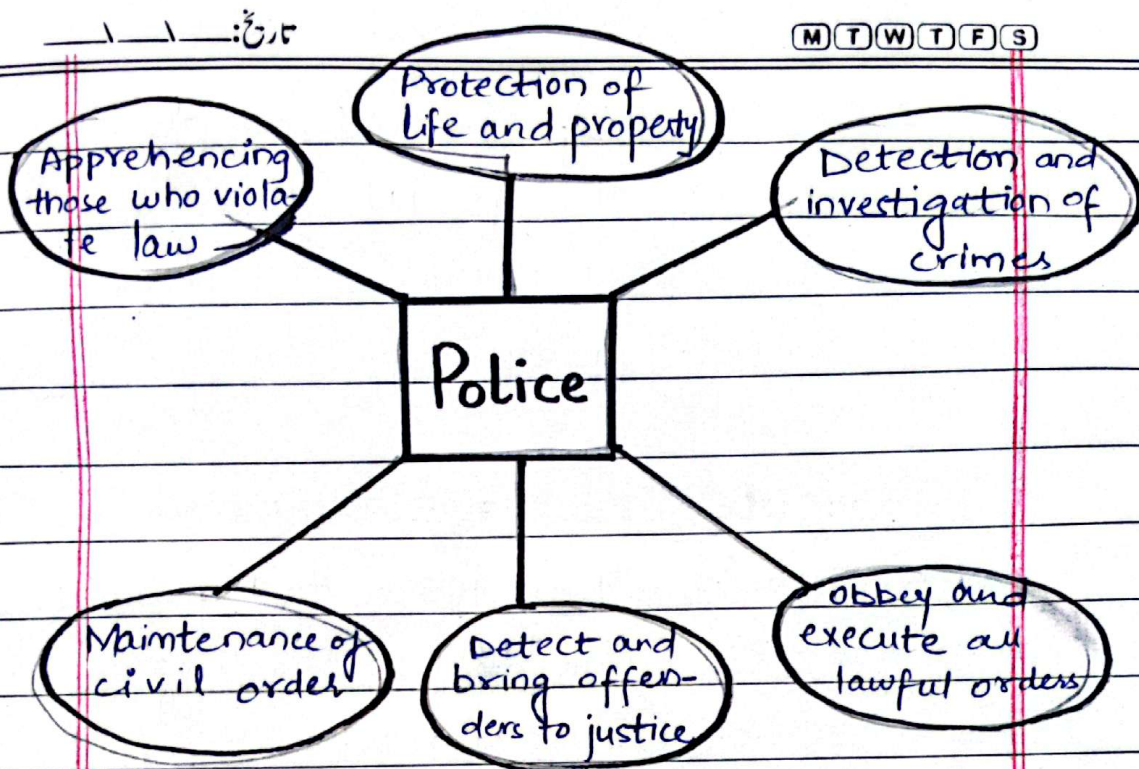 تاریخ: __ \ __ \ __
M T W T F S
Protection of
life and property
Apprehencing
those who viola-
te law
Detection and
investigation of
crimes
Police
Maimtenance of
civil order
Detect and
bring offen-
ders to justice
obbey and
execute all
lawful orders